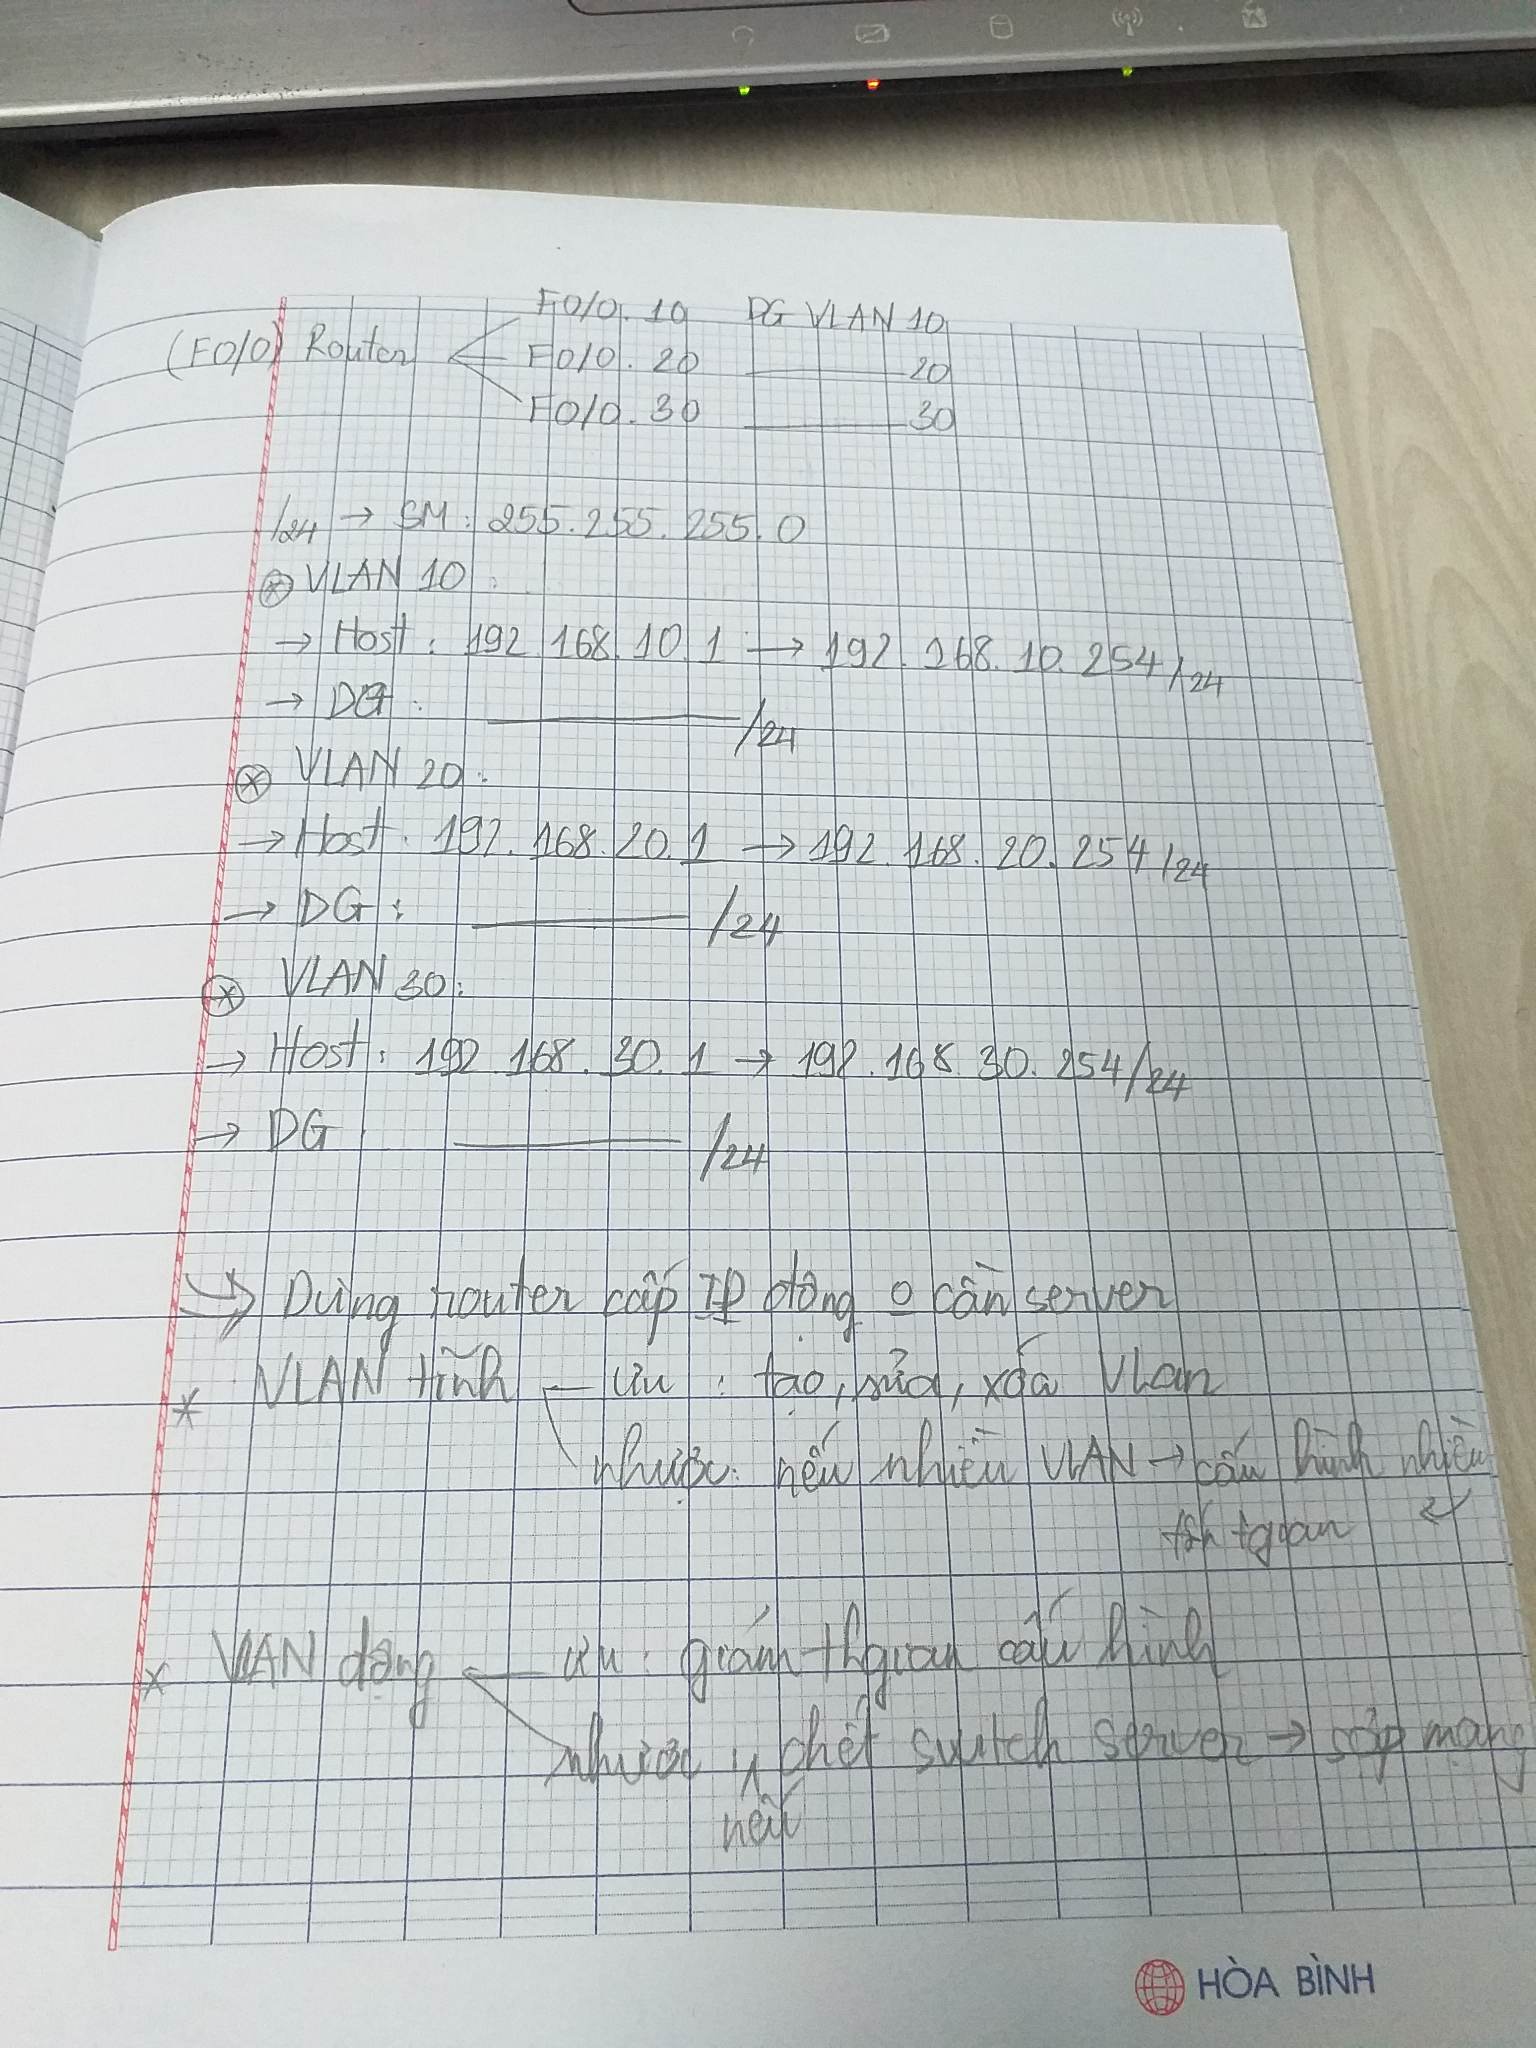 F0/0.10 DG VLAN 10
(F0/0) Router F0/0.20 20
F0/0.30 30
/24 → SM: 255.255.255.0
⊛ VLAN 10:
→ Host: 192.168.10.1 → 192.168.10.254/24
→ DG: /24
⊛ VLAN 20:
→ Host: 192.168.20.1 → 192.168.20.254/24
→ DG: /24
⊛ VLAN 30:
→ Host: 192.168.30.1 → 192.168.30.254/24
→ DG /24
Dùng router cấp IP động 0 cần server
* VLAN tĩnh ưu: tạo, sửa, xóa Vlan
nhược: nếu nhiều VLAN → cấu hình nhiều
tgian
* VLAN động ưu: giảm thgian cấu hình
nhược chết switch server → sập mạng
nếu
HÒA BÌNH